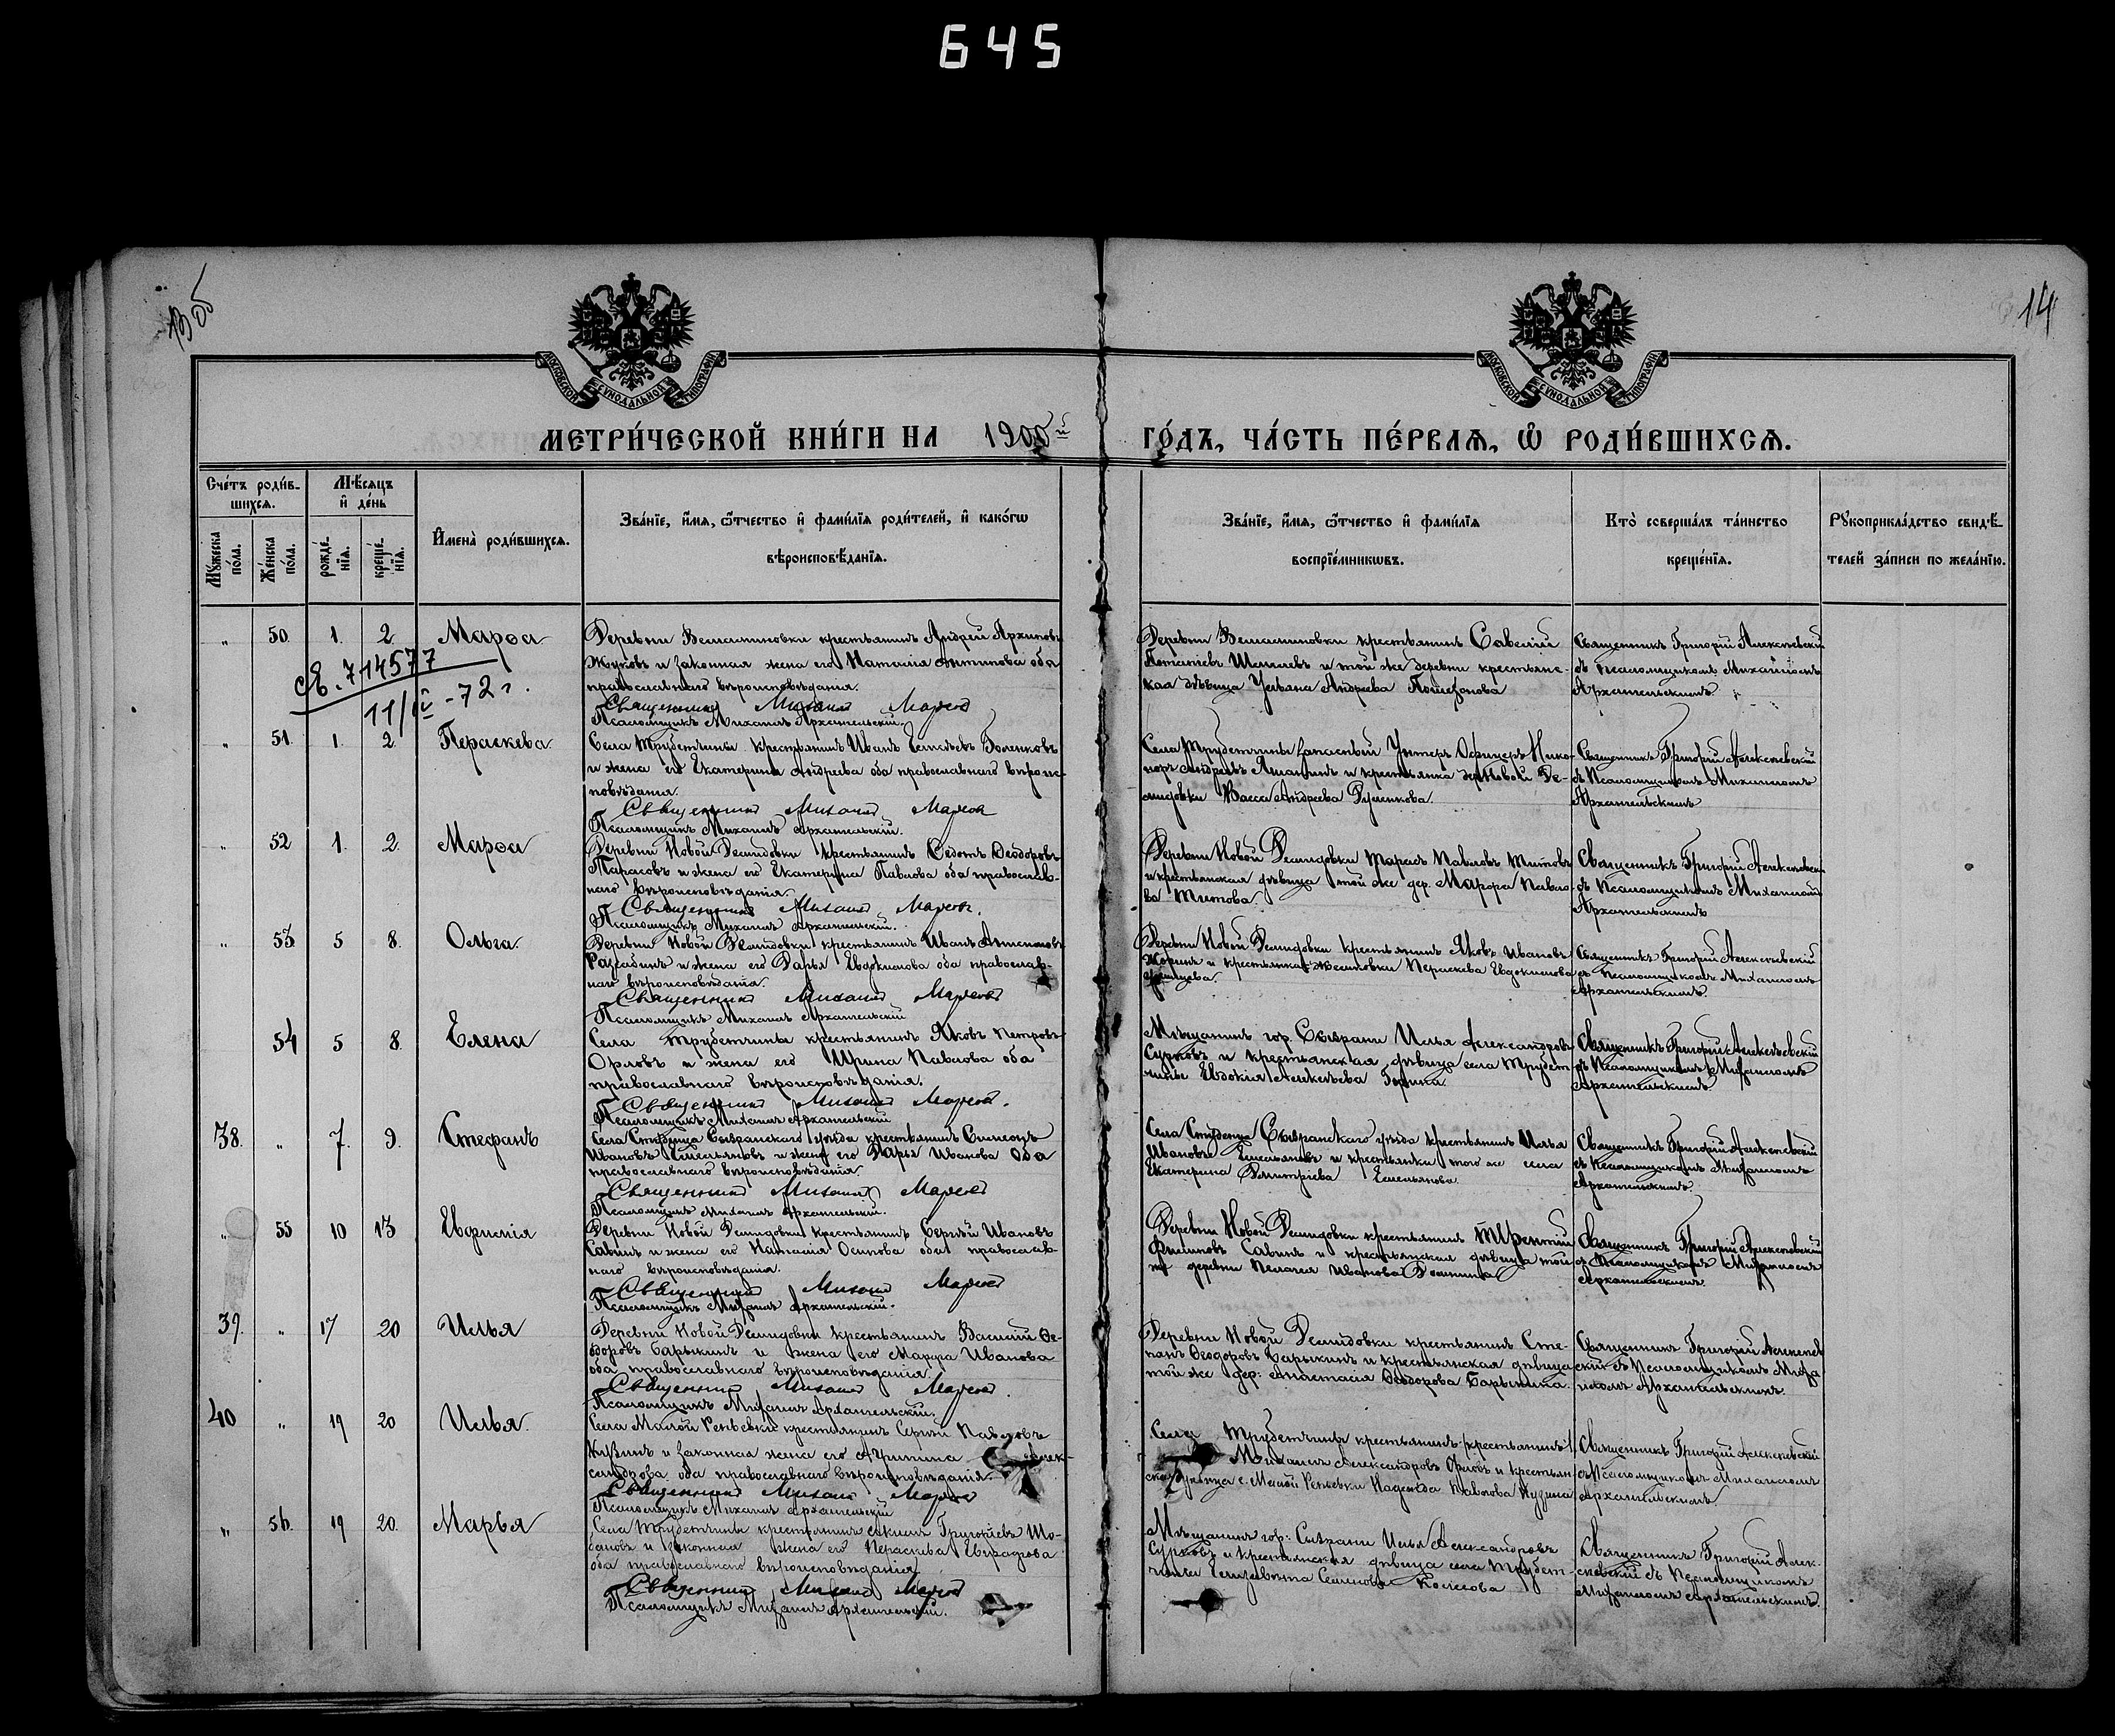 645
13 об
14
МОСКОВСКОЙ СѴНОДАЛЬНОЙ ТИПОГРАФІИ
МОСКОВСКОЙ СѴНОДАЛЬНОЙ ТИПОГРАФІИ
МЕТРИ́ЧЕСКОЙ КНИ́ГИ НА 1900й ГО́ДЪ, ЧА́СТЬ ПЕ́РВАѦ, Ѡ҆ РОДИ́ВШИХСѦ.
Сче́тъ роди́в-
шихсѧ.
Мѣ́сѧцъ
и҆ де́нь
Мꙋ́жеска
по́ла.
Же́нска
по́ла.
рожде́-
нїѧ.
креще́-
нїѧ.
И҆мена̀ роди́вшихсѧ.
Зва́нїе, и҆́мѧ, ѻ҆́тчество и҆ фами́лїѧ роди́телей, и҆ како́гѡ
вѣроисповѣ́данїѧ.
Зва́нїе, и҆́мѧ, ѻ҆́тчество и҆ фами́лїѧ
воспрїе́мникѡвъ.
Кто̀ соверша́лъ та́инство
креще́нїѧ.
Рꙋкоприкла́дство свидѣ́-
телей за́писи по жела́нїю.
" 50. 1. 2 Марѳа
Деревни Веніаминовки крестьянинъ Андрей Архиповъ
Жуковъ и законная жена его Наталія Антипова оба
православнаго вѣроисповѣданія.
Священникъ Михаилъ
Псаломщикъ Михаилъ Архангельскій.
Деревни Веніаминовки крестьянинъ Савелій
и той же деревни крестьянс-
кая дѣвица Ульяна Андреева
Священникъ Григорій Алексѣевскій
съ псаломщикомъ Михаиломъ
Архангельскимъ
714577
11/ -72 г.
" 51. 1. 2. Параскева
Села Трубетчины крестьянинъ Иванъ
и жена его Екатерина Андреева оба православнаго вѣроис-
повѣданія.
Священникъ Михаилъ
Псаломщикъ Михаилъ Архангельскій.
Села Трубетчины запасный Унтеръ Офицеръ Нико-
норъ Андреевъ и крестьянка дер. Новой Де-
мидовки Васса Андреева
Священникъ Григорій Алексѣевскій
съ Псаломщикомъ Михаиломъ
Архангельскимъ
" 52 1. 2. Марѳа
Деревни Новой Демидовки крестьянинъ Ѳедотъ Ѳеодоровъ
Тарасовъ и жена его Екатерина Павлова оба православ-
наго вѣроисповѣданія.
Священникъ Михаилъ
Псаломщикъ Михаилъ Архангельскій.
Деревни Новой Демидовки Тарасъ Павловъ Титовъ
и крестьянская дѣвица той же дер. Марѳа Павло-
ва Титова
Священникъ Григорій Алексѣевскій
съ Псаломщикомъ Михаиломъ
Архангельскимъ
" 53 5 8. Ольга
Деревни Новой Демидовки крестьянинъ Иванъ
и жена его Дарья Евдокимова оба православ-
наго вѣроисповѣданія.
Священникъ Михаилъ
Псаломщикъ Михаилъ Архангельскій
Деревни Новой Демидовки крестьянинъ Яковъ Ивановъ
и крестьянка Параскева Евдокимова
Священникъ Григорій Алексѣевскій
съ псаломщикомъ Михаиломъ
Архангельскимъ.
54 5 8. Елена
Села Трубетчины крестьянинъ Яковъ Петровъ
Орловъ и жена его Ирина Павлова оба
православнаго вѣроисповѣданія.
Священникъ Михаилъ
Псаломщикъ Михаилъ Архангельскій
Мѣщанинъ гор. Сызрани Илья Александровъ
Сурковъ и крестьянская дѣвица села Трубет-
чины Евдокія Алексѣева
Священникъ Григорій Алексѣевскій
съ Псаломщикомъ Михаиломъ
Архангельскимъ
38. " 7. 9. Стефанъ
Села Студенца Сызранскаго уѣзда крестьянинъ Симеонъ
Ивановъ Емельяновъ и жена его Дарья Иванова оба
православнаго вѣроисповѣданія.
Священникъ Михаилъ
Псаломщикъ Михаилъ Архангельскій.
Села Студенца Сызранскаго уѣзда крестьянинъ Илья
Ивановъ Емельяновъ и крестьянка того же села
Екатерина Димитріева Емельянова.
Священникъ Григорій Алексѣевскій
съ Псаломщикомъ Михаиломъ
Архангельскимъ.
" 55 10 13 Евфимія
Деревни Новой Демидовки крестьянинъ Сергѣй Ивановъ
Савинъ и жена его Наталія Осипова оба православ-
наго вѣроисповѣданія.
Священникъ Михаилъ
Псаломщикъ Михаилъ Архангельскій.
Деревни Новой Демидовки крестьянинъ
Филиповъ Савинъ и крестьянская дѣвица той
же деревни Пелагея Иванова
Священникъ Григорій Алексѣевскій
съ Псаломщикомъ Михаиломъ
Архангельскимъ.
39. " 17 20 Илья
Деревни Новой Демидовки крестьянинъ Василій Ѳе-
одоровъ Барыкинъ и жена его Марѳа Иванова
оба православнаго вѣроисповѣданія.
Священникъ Михаилъ
Псаломщикъ Михаилъ Архангельскій.
Деревни Новой Демидовки крестьянинъ Сте-
панъ Ѳеодоровъ Барыкинъ и крестьянская дѣвица
той же дер: Анастасія Ѳеодорова Барыкина.
Священникъ Григорій Алексѣев-
скій съ Псаломщикомъ Миха-
иломъ Архангельскимъ.
40 " 19 20 Илья.
Села Малой Репьевки крестьянинъ Сергѣй Павловъ
Кузинъ и законная жена его Алек-
сандрова оба православнаго вѣроисповѣданія.
Священникъ Михаилъ
Псаломщикъ Михаилъ Архангельскій
Села Трубетчины крестьянинъ (крестьянинъ)
Михаилъ Александровъ и крестьян-
ская дѣвица с. Малой Репьевки Надежда Павлова Кузина
Священникъ Григорій Алексѣевскій
съ Псаломщикомъ Михаиломъ
Архангельскимъ.
" 56. 19 20. Марья
Села Трубетчины крестьянинъ Григорьевъ
и законная жена его Параскева
оба православнаго вѣроисповѣданія
Священникъ Михаилъ
Псаломщикъ Михаилъ Архангельскій.
Мѣщанинъ гор: Сызрани Илья Александровъ
Сурковъ и крестьянская дѣвица села Трубет-
чины Елизавета
Священникъ Григорій Алек-
сѣевскій съ Псаломщикомъ
Михаиломъ Архангельскимъ.